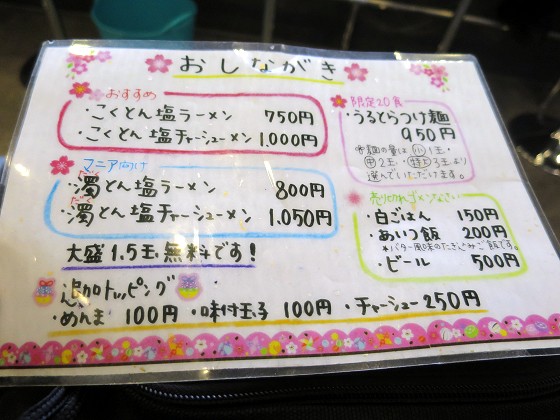 おしながき
おすすめ
・こくとん塩ラーメン 750円
・こくとん塩チャーシューメン 1,000円
マニア向け
だく
・濁とん塩ラーメン 800円
だく
・濁とん塩チャーシューメン 1,050円
大盛1.5玉、無料です!
追加トッピング
・めんま 100円 ・味付玉子 100円 ・チャーシュー 250円
限定20食
・うるとらつけ麺
950円
※麺の量は小1玉・
中2玉・特上3玉より
選んでいただけます。
売り切れゴメンなさい
・白ごはん 150円
・あいつ飯 200円
*バター風味のたきこみご飯です。
・ビール 500円